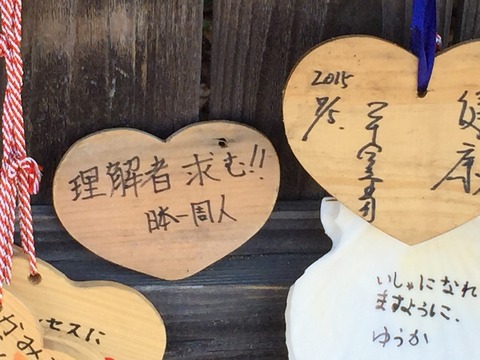 理解者 求む!!
日本一周人
2015
9/5.
健康
いしゃになれ
ますように、
ゆうか
セスに
かみ